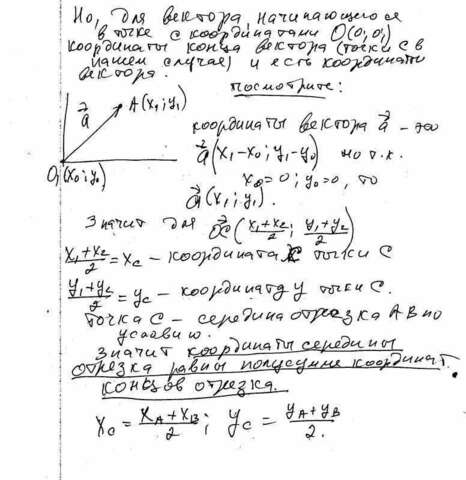 Но, для вектора, начинающегося
в точке с координатами O(0,0,)
координаты конца вектора (точки С в
нашем случае) и есть координаты
вектора.
посмотрите:
a⃗ A(x₁; y₁)
координаты вектора a⃗ - это
a⃗(x₁-x₀; y₁-y₀) но т.к.
O(x₀; y₀)
x₀=0; y₀=0, то
a⃗(x₁; y₁).
Значит для OC⃗((x₁+x₂)/2; (y₁+y₂)/2)
(x₁+x₂)/2 = xc - координата x точки С
(y₁+y₂)/2 = yc - координата y точки С.
Точка С - середина отрезка AB по
условию.
Значит координаты середины
отрезка равны полусумме координат
концов отрезка.
xc = (xA+xB)/2; yc = (yA+yB)/2.